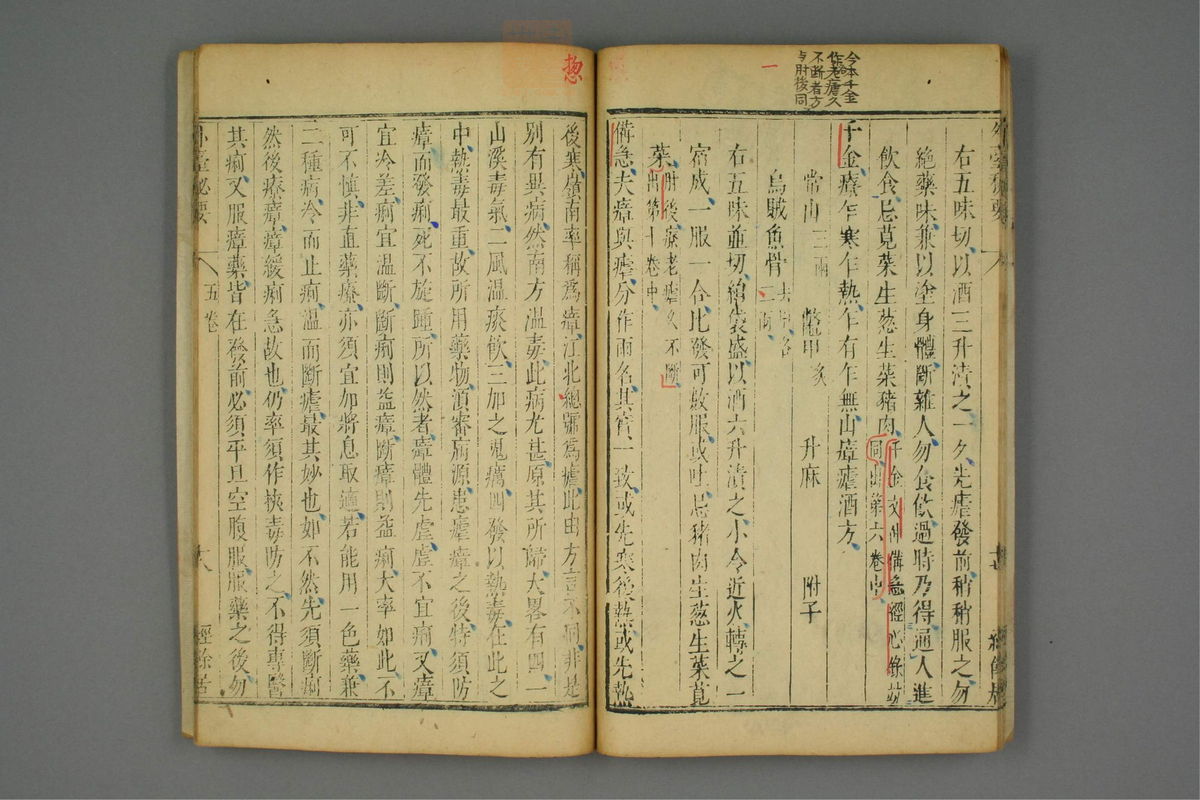 今本千金
作老瘧久
不斷者方
与肘後同
一
右五味切以酒三升漬之一夕先瘧發前稍稍服之勿
絶藥味兼以塗身體斷雜人勿食飲過時乃得通人進
飲食忌莧菜生葱生菜豬肉千金文仲備急經心錄並
同出第六卷中
千金療乍寒乍熱乍有乍無山瘴瘧酒方
常山三兩 鼈甲炙 升麻 附子
烏賊魚骨去甲各
二兩
右五味並切綿袋盛以酒六升漬之小令近火轉之一
宿成一服一合比發可數服或吐忌豬肉生葱生菜莧
菜肘後療老瘧久不斷
出第十卷中
備急夫瘴與瘧分作兩名其實一致或先寒後熱或先熱
惣
後寒嶺南率稱爲瘴江北總號爲瘧此由方言不同非是
別有異病然南方温毒此病尤甚原其所歸大畧有四一
山溪毒氣二風温痰飲三加之鬼癘四發以熱毒在此之
中熱毒最重故所用藥物須審病源患瘧瘴之後特須防
瘴而發痢死不旋踵所以然者瘴體先虛虛不宜痢又瘴
宜冷差痢宜温斷斷痢則益瘴斷瘴則益痢大率如此不
可不慎非直藥療亦須宜加將息取適若能用一色藥兼
二種病冷而止痢温而斷瘧最其妙也如不然先須斷痢
然後療瘴瘴緩痢急故也仍率須作挾毒防之不得專醫
其痢又服瘴藥皆在發前必須平旦空腹服服藥之後勿
外臺祕要
五卷
十八
經餘居